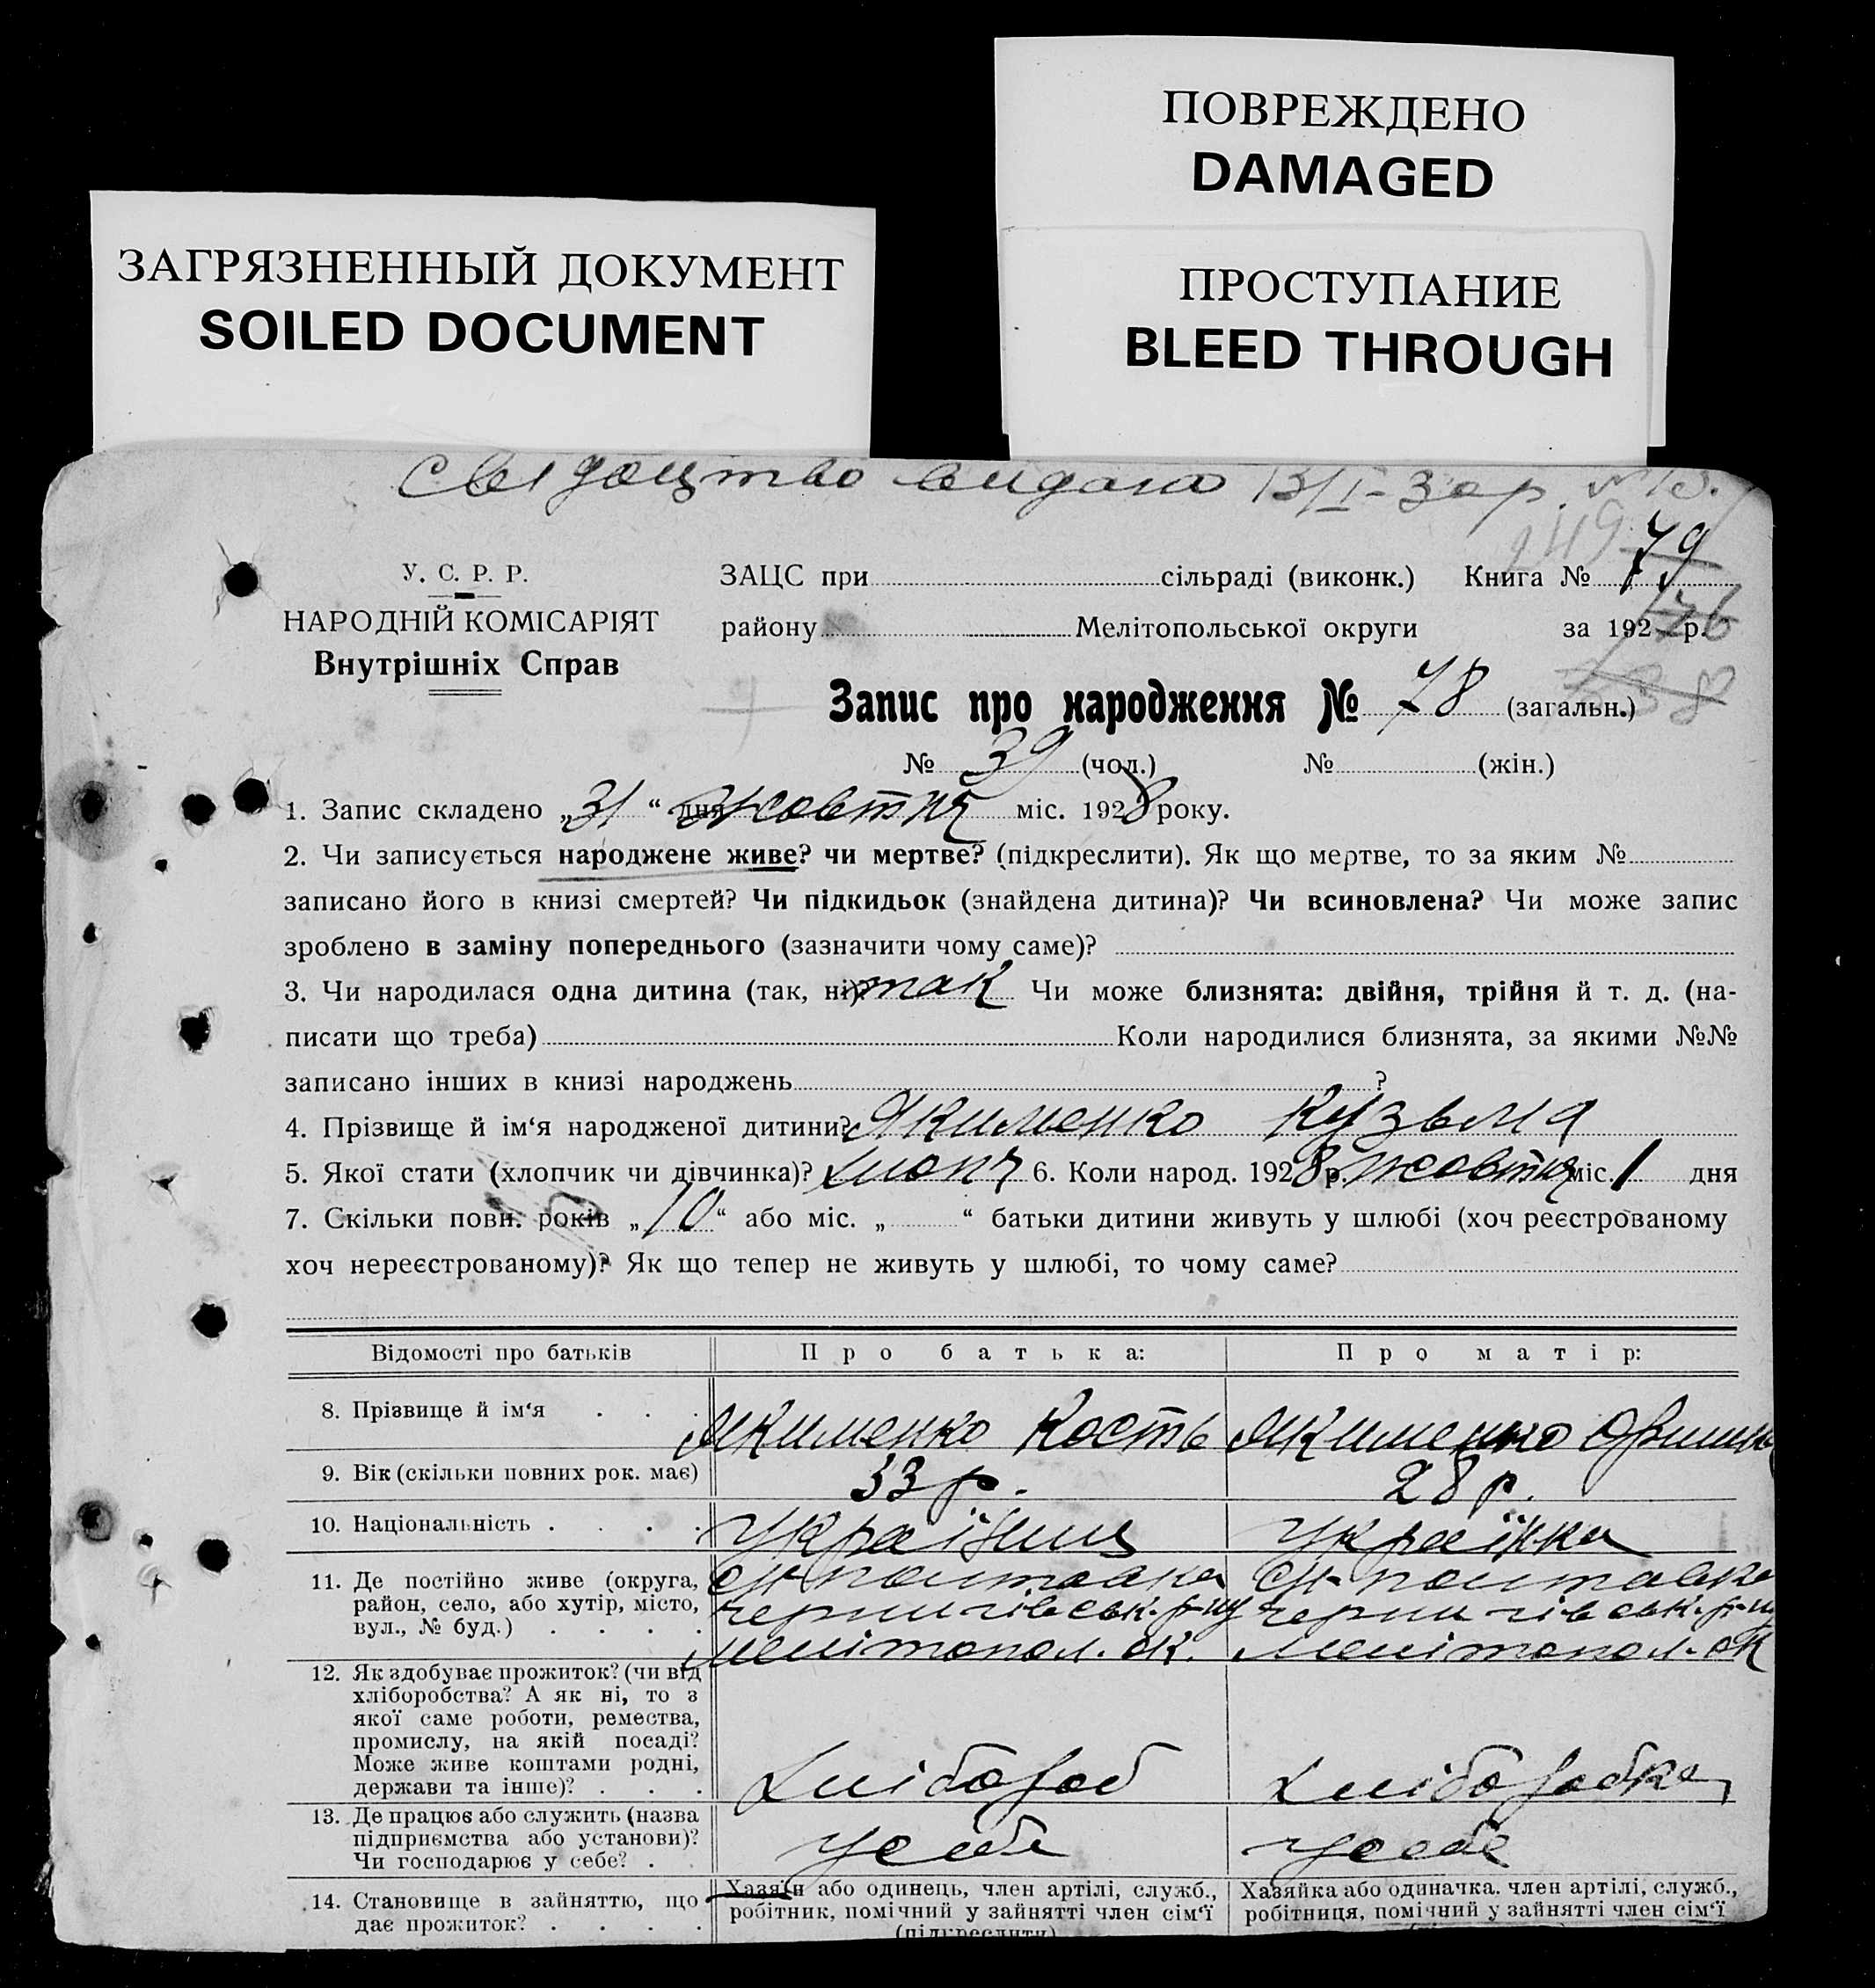 ПОВРЕЖДЕНО
DAMAGED
ЗАГРЯЗНЕННЫЙ ДОКУМЕНТ
SOILED DOCUMENT
ПРОСТУПАНИЕ
BLEED THROUGH
Свідоцтво видано 13/I-30р. №13.
249
У. С. Р. Р.
НАРОДНІЙ КОМІСАРІЯТ
Внутрішніх Справ
ЗАЦС при сільраді (виконк.) Книга № 79
176
району Мелітопольської округи за 192 р.
338
Запис про народження № 78 (загальн.)
№ 39 (чол.) № (жін.)
1. Запис складено „31“ дня жовтня міс. 1928 року.
2. Чи записується народжене живе? чи мертве? (підкреслити). Як що мертве, то за яким №
записано його в книзі смертей? Чи підкидьок (знайдена дитина)? Чи всиновлена? Чи може запис
зроблено в заміну попереднього (зазначити чому саме)?
3. Чи народилася одна дитина (так, ні)? так Чи може близнята: двійня, трійня й т. д. (на-
писати що треба) Коли народилися близнята, за якими №№
записано інших в книзі народжень ?
4. Прізвище й ім‘я народженої дитини? Якименко Кузьма
5. Якої стати (хлопчик чи дівчинка)? хлопч 6. Коли народ. 1928 р. жовтня міс. 1 дня
7. Скільки повн. років „10“ або міс. „ “ батьки дитини живуть у шлюбі (хоч реєстрованому
хоч нереєстрованому)? Як що тепер не живуть у шлюбі, то чому саме?
Відомості про батьків Про батька: Про матір:
8. Прізвище й ім‘я . . . Якименко Кость Якименко
9. Вік (скільки повних рок. має) 33 р. 28 р.
10. Національність . . . . Українець Українка
11. Де постійно живе (округа,
район, село, або хутір, місто,
вул., № буд.) . . . .
с Н-Полтавка
Чернигівськ. р-ну
Мелітопол. ок.
с Н-Полтавка
Чернигівськ. р-ну
Мелітопол. ок
12. Як здобуває прожиток? (чи від
хліборобства? А як ні, то з
якої саме роботи, ремества,
промислу, на якій посаді?
Може живе коштами родні,
держави та інше)? . . .
Хлібороб Хліборобка
13. Де працює або служить (назва
підприємства або установи)?
Чи господарює у себе? .
У себе У себе
14. Становище в зайняттю, що
дає прожиток? . . . .
Хазяїн або одинець, член артілі, служб.,
робітник, помічний у зайнятті член сім‘ї
(підкреслити)
Хазяйка або одиначка. член артілі, служб.,
робітниця, помічний у зайнятті член сім‘ї